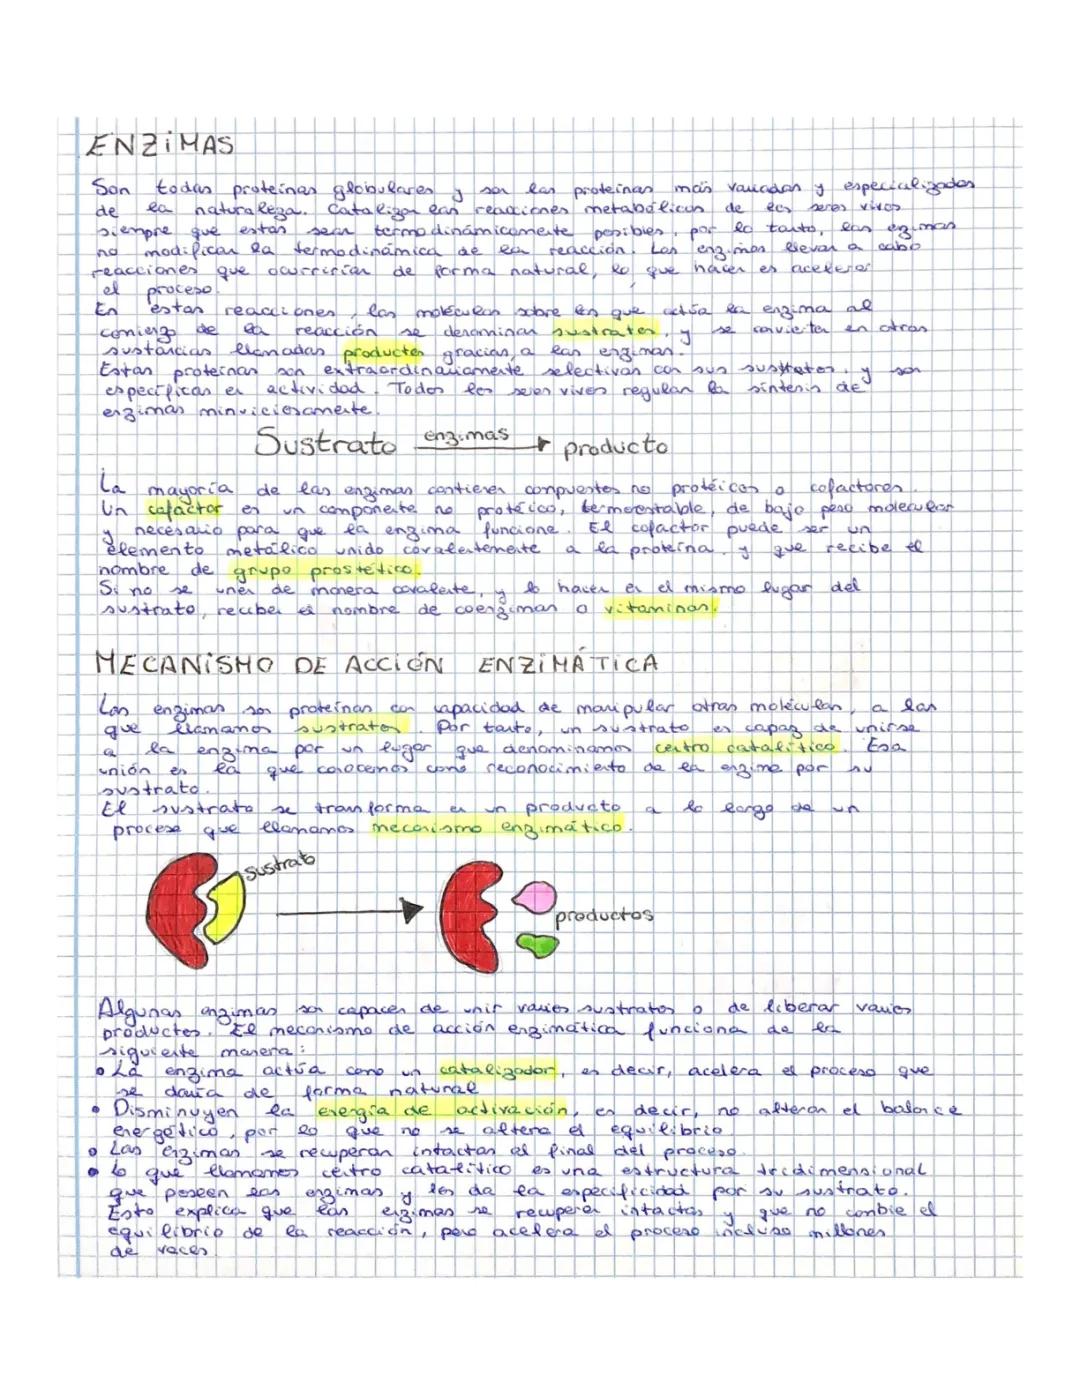 ENZiMAS
Son todas proteínas globulares y son las proteínas más variadas y especializadas
de la naturaleza. Catalizan las reacciones metabólicas de los seres vivos
siempre que estas sean termodinámicamente posibles, por lo tanto, las enzimas
no modifican la termodinámica de la reacción. Las enzimas llevan a cabo
reacciones que ocurrirían de forma natural, lo que hacen es acelerar
el proceso.
En estas reacciones, las moléculas sobre las que actúa la enzima al
comienzo de la reacción se denominan sustratos, y se convierten en otras
sustancias llamadas productos gracias a las enzimas.
Estas proteínas son extraordinariamente selectivas con sus sustratos, y son
específicas en actividad. Todos los seres vivos regulan la síntesis de
enzimas minuiciosamente.
Sustrato enzimas producto
La mayoría de las enzimas contienen compuestos no protéicos o cofactores.
Un cofactor es un componente no protéico, termoestable, de bajo peso molecular
y necesario para que la enzima funcione. El cofactor puede ser un
elemento metálico unido covalentemente a la proteína, y que recibe el
nombre de grupo prostético.
Si no se unen de manera covalente, y lo hacen en el mismo lugar del
sustrato, reciben el nombre de coenzimas o vitaminas.
MECANiSMO DE ACCiÓN ENZiMÁTiCA
Las enzimas son proteínas con capacidad de manipular otras moléculas, a las
que llamamos sustratos. Por tanto, un sustrato es capaz de unirse
a la enzima por un lugar que denominamos centro catalítico. Esa
unión es la que conocemos como reconocimiento de la enzima por su
sustrato.
El sustrato se transforma en un producto a lo largo de un
proceso que llamamos mecanismo enzimático.
sustrato
productos
Algunas enzimas son capaces de unir varios sustratos o de liberar varios
productos. El mecanismo de acción enzimática funciona de la
siguiente manera:
• La enzima actúa como un catalizador, es decir, acelera el proceso que
se daría de forma natural
• Disminuyen la energía de activación, es decir, no alteran el balance
energético, por lo que no se altera el equilibrio.
• Las enzimas se recuperan intactas al final del proceso.
• Lo que llamamos centro catalítico es una estructura tridimensional
que poseen las enzimas y les da la especificidad por su sustrato.
Esto explica que las enzimas se recuperen intactas y que no cambie el
equilibrio de la reacción, pero acelera el proceso incluso millones
de veces.